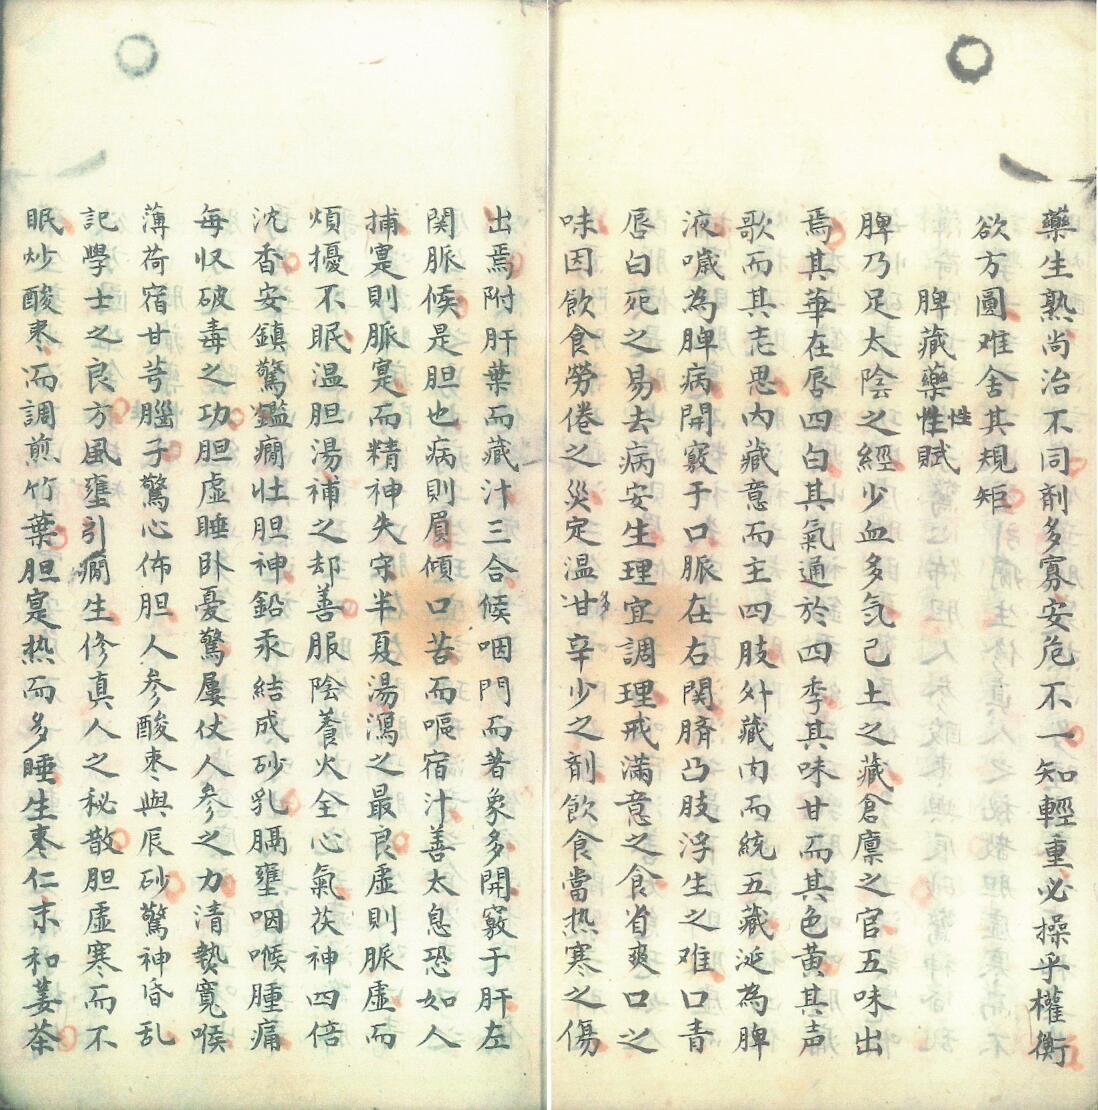 藥生熟尚治不同剤多寡安危不一知輕重必操乎權衡
欲方圓难舍其規矩
脾藏藥性賦
性
脾乃足太陰之經少血多気己土之藏倉廪之官五味出
焉其華在唇四白其氣通於四季其味甘而其色黄其声
歌而其志思内藏意而主四肢外藏肉而統五藏涎為脾
液噦為脾病開竅于口脈在右関臍凸肢浮生之难口青
唇白死之易去病安生理宜調理戒滿意之食省爽口之
味因飲食勞倦之災定温甘辛少之剤飲食當热寒之傷
多
出焉附肝葉而藏汁三合候咽門而著象多開竅于肝左
関脈候是胆也病則眉傾口苦而嘔宿汁善太息恐如人
捕寔則脈寔而精神失守半夏湯瀉之最良虚則脈虚而
煩擾不眠温胆湯補之却善服陰養火全心氣茯神四倍
沈香安鎮驚癇壮胆神鉛汞結成砂乳膈壅咽喉腫痛
每収破毒之功胆虚睡卧憂驚屡仗人参之力清熱寛喉
薄荷宿甘芎腦子驚心佈胆人参酸枣與辰砂驚神昏乱
記學士之良方風壅引癇生修真人之秘散胆虚寒而不
眠炒酸枣而調煎竹葉胆寔热而多睡生枣仁末和姜茶